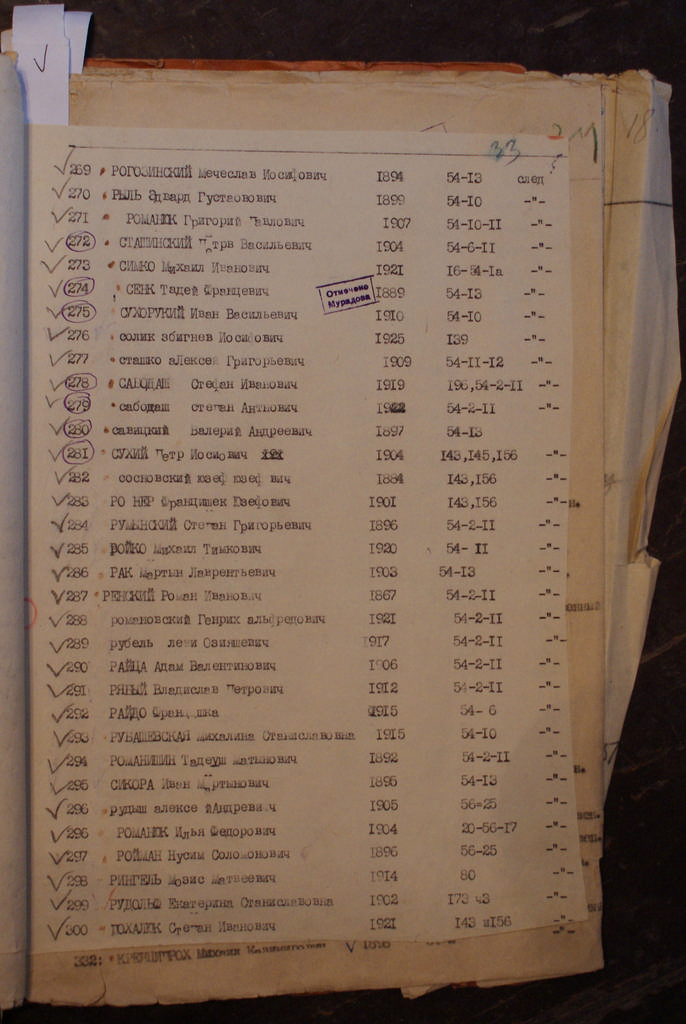 33 24 18
269 РОГОЗИНСКИЙ Мечеслав Иосифович 1894 54-13 след
270 РЫЛЬ Эдвард Густавович 1899 54-10 -"-
271 РОМАНЮК Григорий Павлович 1907 54-10-II -"-
272 СТАШИНСКИЙ Петрв Васильевич 1904 54-6-II -"-
273 СИМКО Михаил Иванович 1921 16-54-Iа -"-
274 СЕНК Тадей Францевич 1889 54-13 -"-
Отмечено
Мурадова
275 СУХОРУКИЙ Иван Васильевич 1910 54-10 -"-
276 солик збигнев Иосифович 1925 139 -"-
277 сташко аЛексей Григорьевич 1909 54-II-12 -"-
278 САБОДАШ Стефан Иванович 1919 196,54-2-II -"-
279 сабодаш степан Антнович 1922 54-2-II -"-
280 савицкий Валерий Андреевич 1897 54-13
281 СУХИЙ Петр Иосифович 1904 143,145,156 -"-
282 сосновский юзеф юзеф вич 1884 143,156 -"-
283 Францишек Юзефович 1901 143,156 -"-
284 РУМЫНСКИЙ Степан Григорьевич 1896 54-2-II -"-
285 РОЙКО Михаил Тимкович 1920 54- II -"-
286 РАК Мартын Лаврентьевич 1903 54-13 -"-
287 РЕНСКИЙ Роман Иванович 1867 54-2-II -"-
288 романовский Генрих альфредович 1921 54-2-II -"-
289 рубель леви Озияшевич 1917 54-2-II -"-
290 РАЙЦА Адам Валентинович 1906 54-2-II -"-
291 РЯНЫЙ Владислав Петрович 1912 54-2-II -"-
292 РАЙДО Францишка 1915 54- 6 -"-
293 РУБАШЕВСКАЯ михалина Станиславовна 1915 54-10 -"-
294 РОМАНИШИН Тадеуш матьянович 1892 54-2-II -"-
295 СИКОРА Иван Мартынович 1895 54-13 -"-
296 рудыш алексе йАндревич 1905 56=25 -"-
296 РОМАНЮК Илья Федорович 1904 20-56-17 -"-
297 РОЙМАН Нусим Соломонович 1896 56-25 -"-
298 РИНГЕЛЬ мозис матвеевич 1914 80 -"-
299 РУДОЛЬФ Екатерина Станиславовна 1902 173 ч3 -"-
300 ПОХАЛЮК Степан Иванович 1921 143 и156 -"-
332: